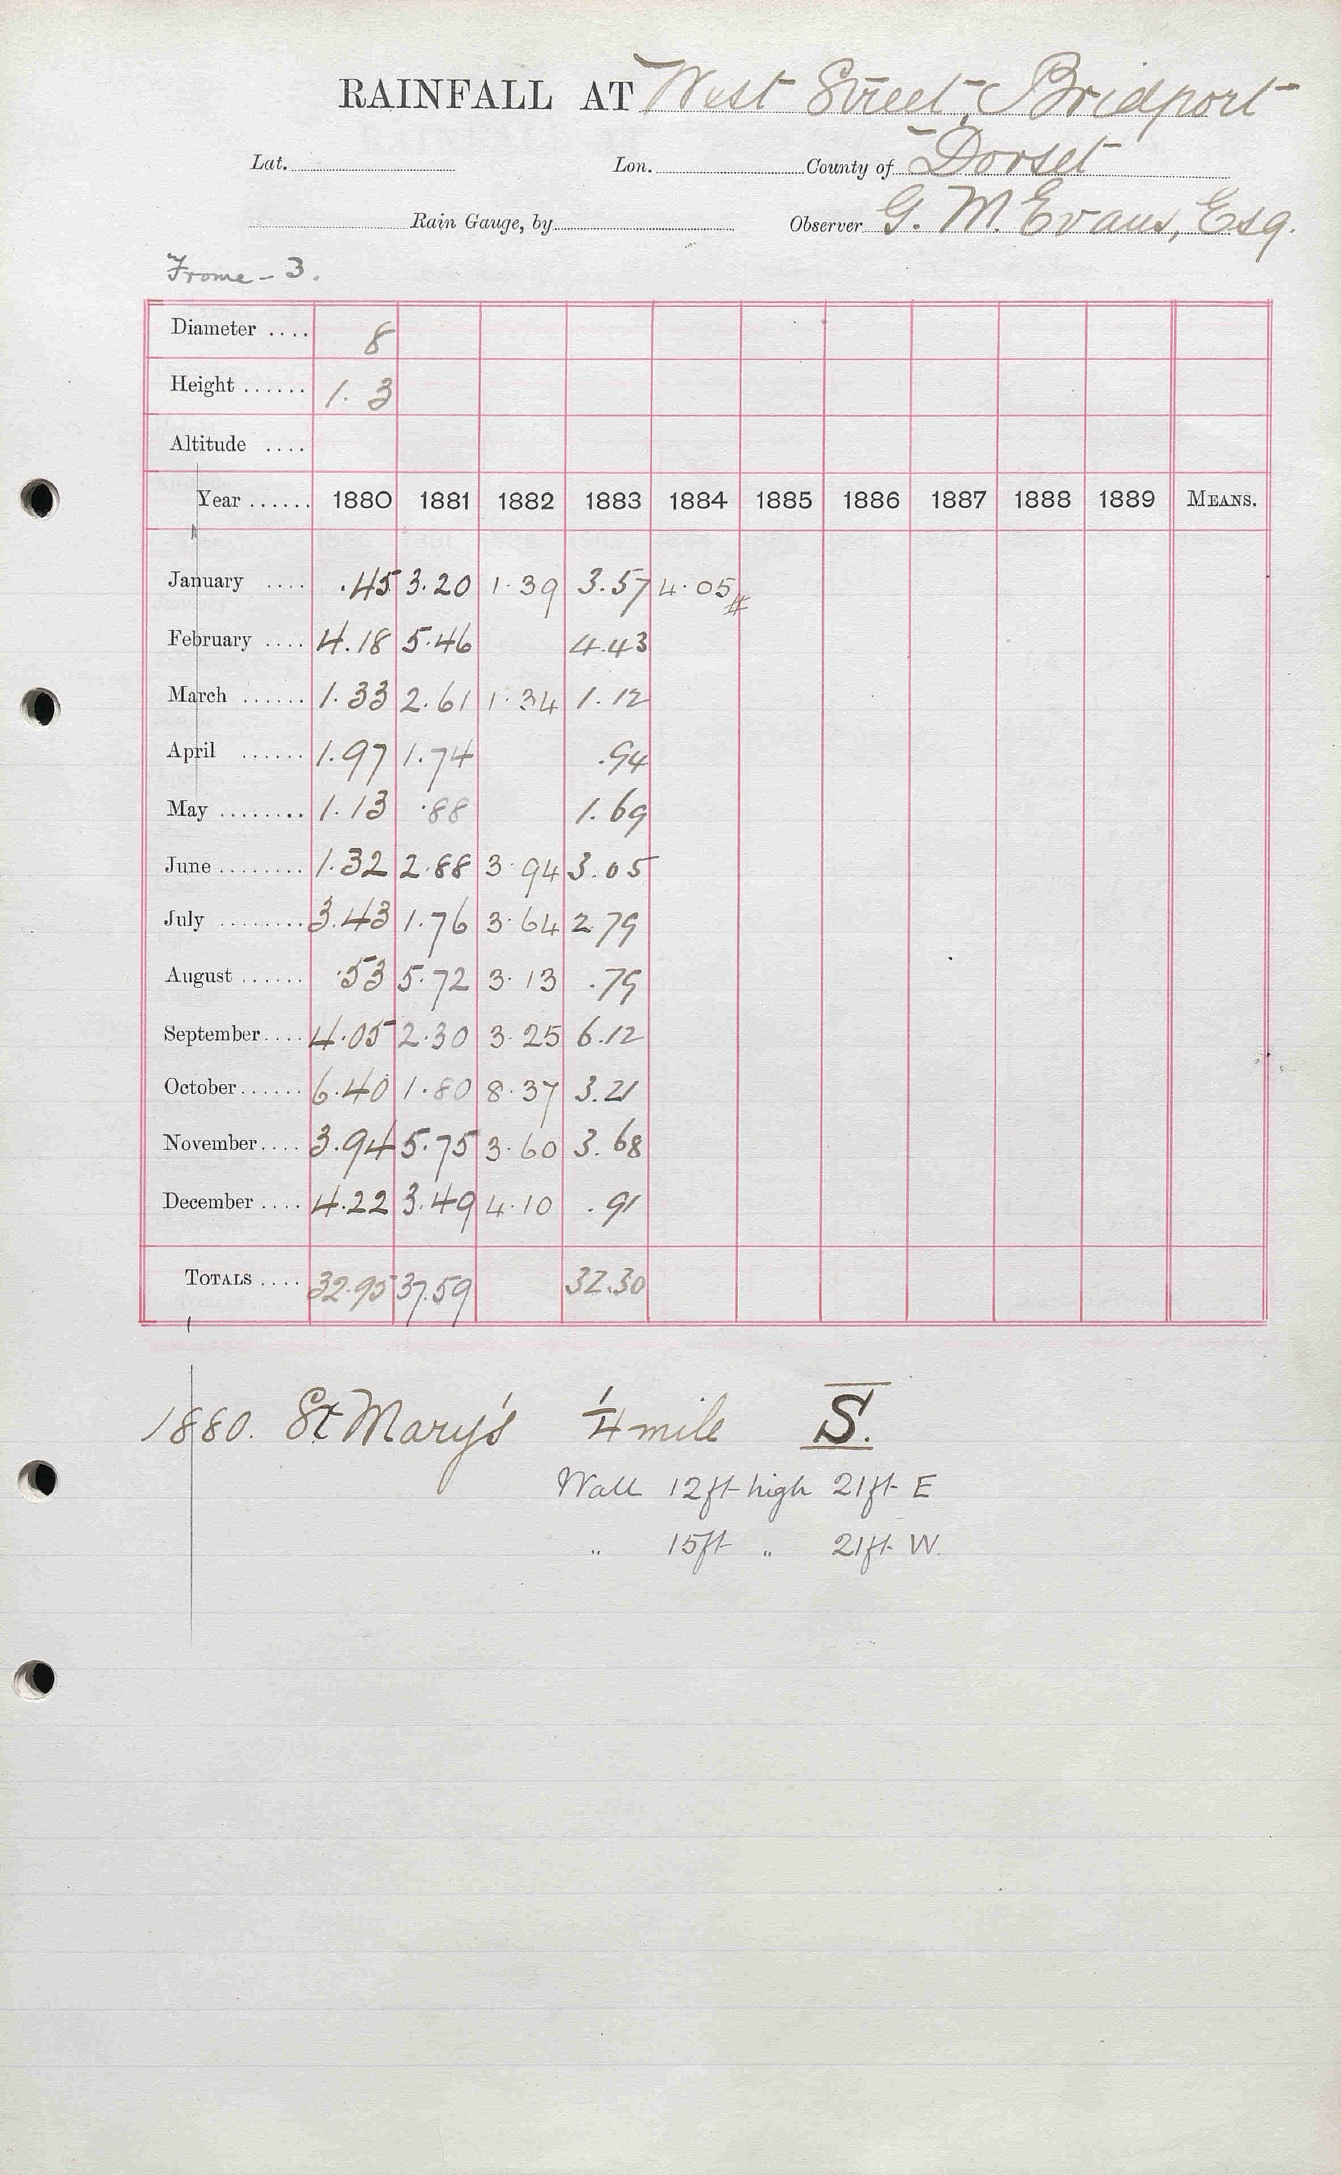 RAINFALL AT West Street, Bridport
Lat. Lon. County of Dorset
Rain Gauge, by Observer G. M. Evans, Esq.
Frome - 3.
Diameter .... 8
Height ...... 1. 3
Altitude ....
Year ...... 1880 1881 1882 1883 1884 1885 1886 1887 1888 1889 MEANS.
January .... .45 3.20 1.39 3.57 4.05
February .... 4.18 5.46 4.43
March ...... 1.33 2.61 1.34 1.12
April ...... 1.97 1.74 .94
May ........ 1.13 .88 1.69
June ........ 1.32 2.88 3.94 3.05
July ........ 3.43 1.76 3.64 2.79
August ...... .53 5.72 3.13 .79
September .... 4.05 2.30 3.25 6.12
October ...... 6.40 1.80 8.37 3.21
November .... 3.94 5.75 3.60 3.68
December .... 4.22 3.49 4.10 .91
TOTALS .... 32.95 37.59 32.30
1880. St Mary's 1/4 mile S.
Wall 12ft high 21ft E
„ 15ft „ 21ft W.